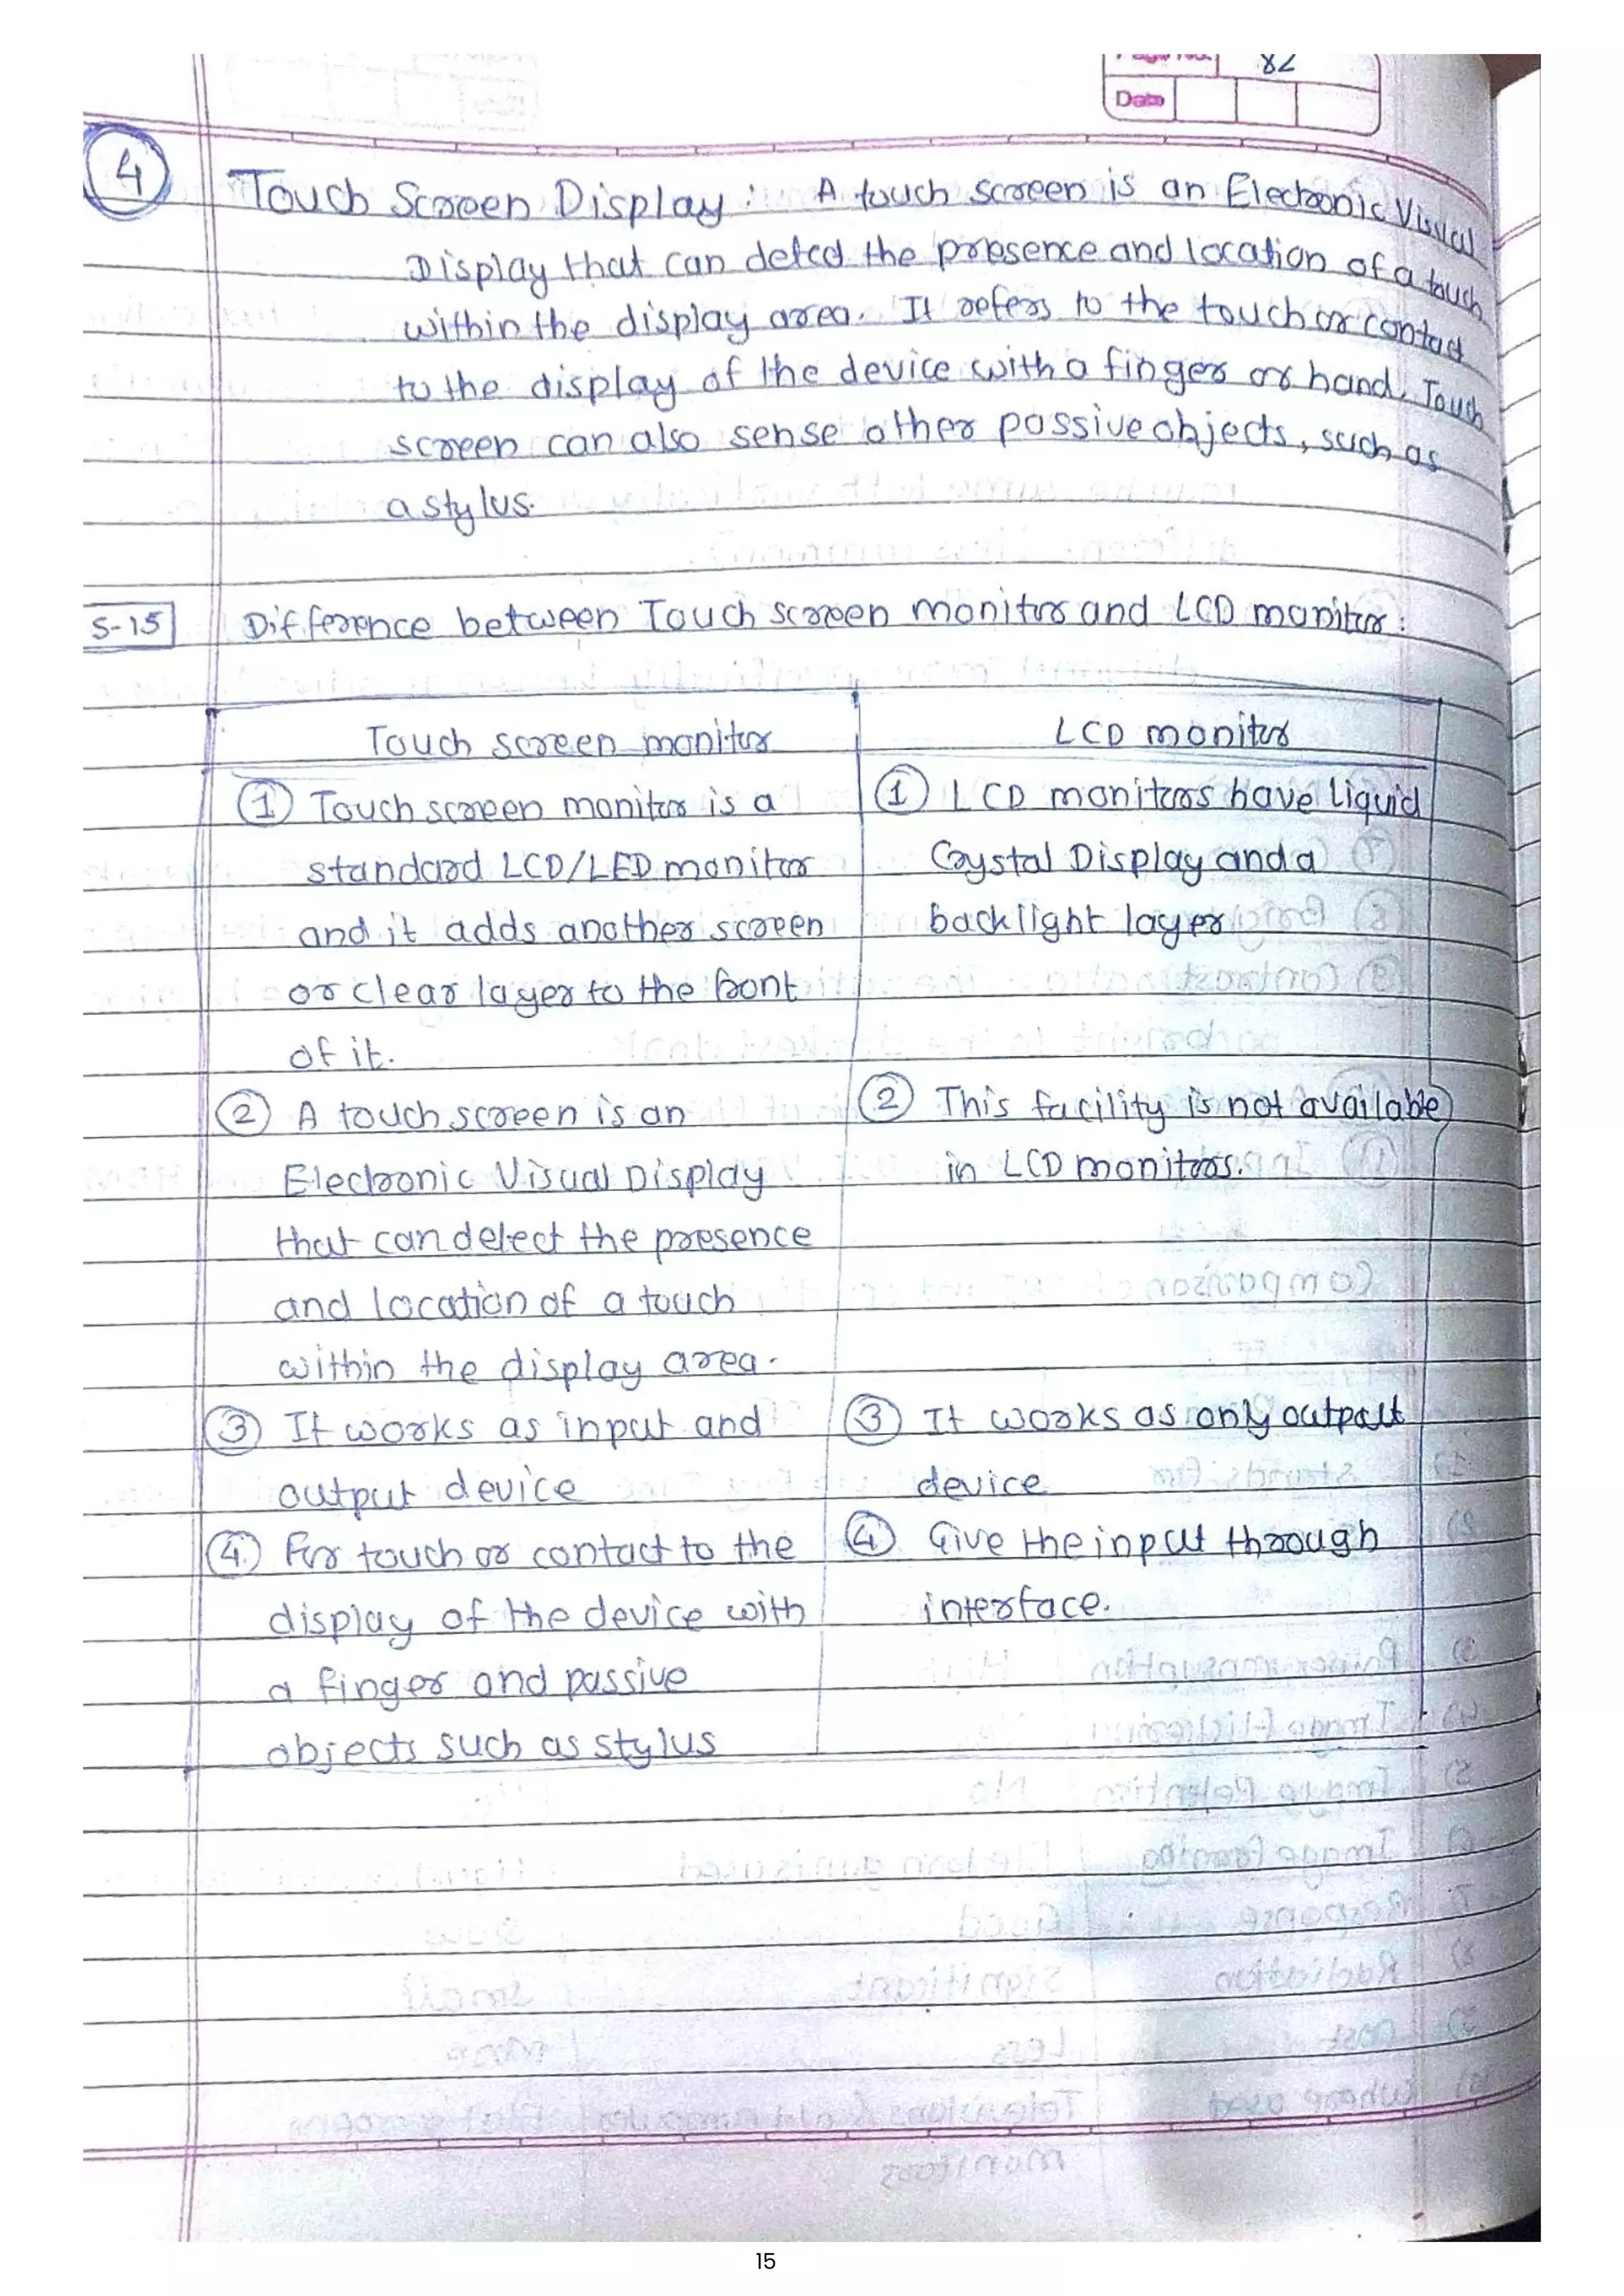 Page No. 78
Date
4 Touch Screen Display : A touch screen is an Electronic Visual
Display that can detect the presence and location of a touch
within the display area. It refers to the touch or contact
to the display of the device with a finger or hand. Touch
screen can also sense other passive objects, such as
a stylus.
S-15 Difference between Touch screen monitor and LCD monitor :
Touch screen monitor
① Touch screen monitor is a
standard LCD/LED monitor
and it adds another screen
or clear layer to the front
of it.
② A touch screen is an
Electronic Visual Display
that can detect the presence
and location of a touch
within the display area.
③ It works as input and
output device
④ For touch or contact to the
display of the device with
a finger and passive
objects such as stylus
LCD monitor
① LCD monitors have Liquid
Crystal Display and a
backlight layer
② This facility is not available
in LCD monitors.
③ It works as only output
device
④ Give the input through
interface.
15